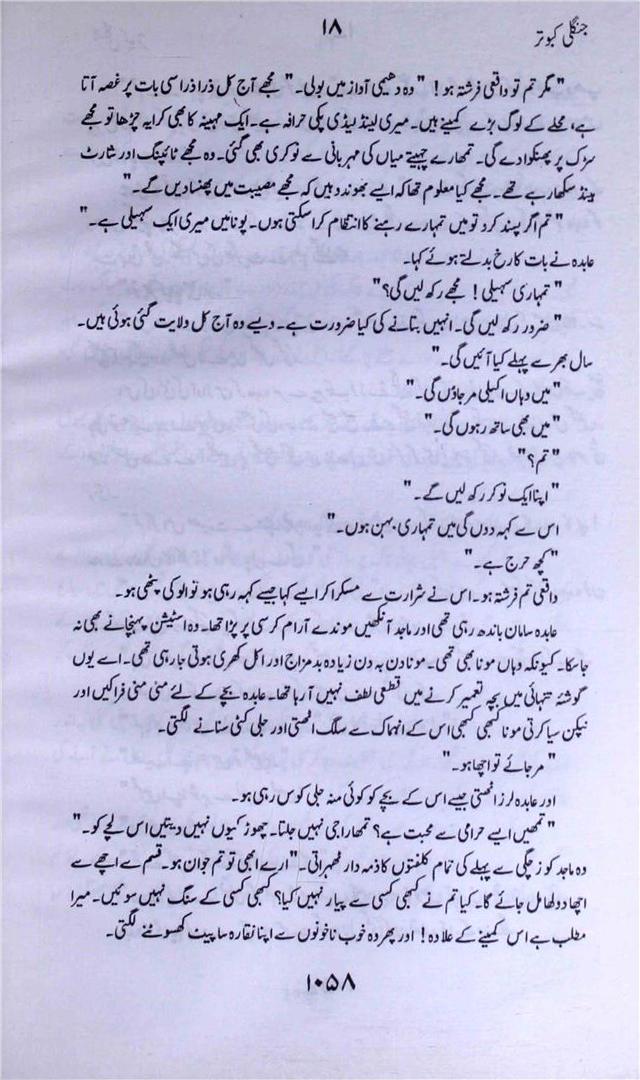 جنگلی کبوتر
۱۸
"مگر تم تو واقعی فرشتہ ہو! "وہ دھیمی آواز میں بولی۔" مجھے آج کل ذرا ذرا سی بات پر غصہ آتا
ہے، محلے کے لوگ بڑے کمینے ہیں۔ میری لینڈ لیڈی پکی حرافہ ہے۔ ایک مہینہ کا بھی کرایہ چڑھا تو مجھے
سڑک پر پھنکوا دے گی۔ تمھارے چہیتے میاں کی مہربانی سے نوکری بھی گئی۔ وہ مجھے ٹائپنگ اور شارٹ
ہینڈ سکھا رہے تھے۔ مجھے کیا معلوم تھا کہ ایسے بھوندو ہیں کہ مجھے مصیبت میں پھنسا دیں گے۔"
"تم اگر پسند کرو تو میں تمہارے رہنے کا انتظام کرا سکتی ہوں۔ پونا میں میری ایک سہیلی ہے۔"
عابدہ نے بات کا رخ بدلتے ہوئے کہا۔
"تمہاری سہیلی! مجھے رکھ لیں گی؟"
"ضرور رکھ لیں گی۔ انہیں بتانے کی کیا ضرورت ہے۔ ویسے وہ آج کل ولایت گئی ہوئی ہیں۔
سال بھر سے پہلے کیا آئیں گی۔"
"میں وہاں اکیلی مر جاؤں گی۔"
"میں بھی ساتھ رہوں گی۔"
"تم؟"
"اپنا ایک نوکر رکھ لیں گے۔"
اس سے کہہ دوں گی میں تمہاری بہن ہوں۔"
"کچھ حرج ہے۔"
واقعی تم فرشتہ ہو۔ اس نے شرارت سے مسکرا کر ایسے کہا جیسے کہہ رہی ہو تو الو کی پٹھی ہو۔
عابدہ سامان باندھ رہی تھی اور ماجد آنکھیں موندے آرام کرسی پر پڑا تھا۔ وہ اسٹیشن پہنچانے بھی نہ
جا سکا۔ کیونکہ وہاں مونا بھی تھی۔ مونا دن بہ دن زیادہ بد مزاج اور اکل کھری ہوتی جا رہی تھی۔ اے یوں
گوشئہ تنہائی میں بچہ تعمیر کرنے میں قطعی لطف نہیں آ رہا تھا۔ عابدہ بچے کے لئے منی منی فراکیں اور
نیپکن سیا کرتی مونا کبھی کبھی اس کے انہماک سے سلگ اٹھتی اور جلی کٹی سنانے لگتی۔
"مر جائے تو اچھا ہو۔"
اور عابدہ لرز اٹھتی جیسے اس کے بچے کو کوئی منہ جلی کوس رہی ہو۔
"تمھیں ایسے حرامی سے محبت ہے؟ تمھارا جی نہیں جلتا۔ چھوڑ کیوں نہیں دیتیں اس لچے کو۔"
وہ ماجد کو زچگی سے پہلے کی تمام کلفتوں کا ذمہ دار ٹھہراتی۔ "ارے ابھی تو تم جوان ہو۔ قسم سے اچھے سے
اچھا دولھا مل جائے گا۔ کیا تم نے کبھی کسی سے پیار نہیں کیا؟ کبھی کسی کے سنگ نہیں سوئیں۔ میرا
مطلب ہے اس کمینے کے علاوہ! اور پھر وہ خوب ناخونوں سے اپنا نقارہ سا پیٹ کھسوٹنے لگتی۔
۱۰۵۸